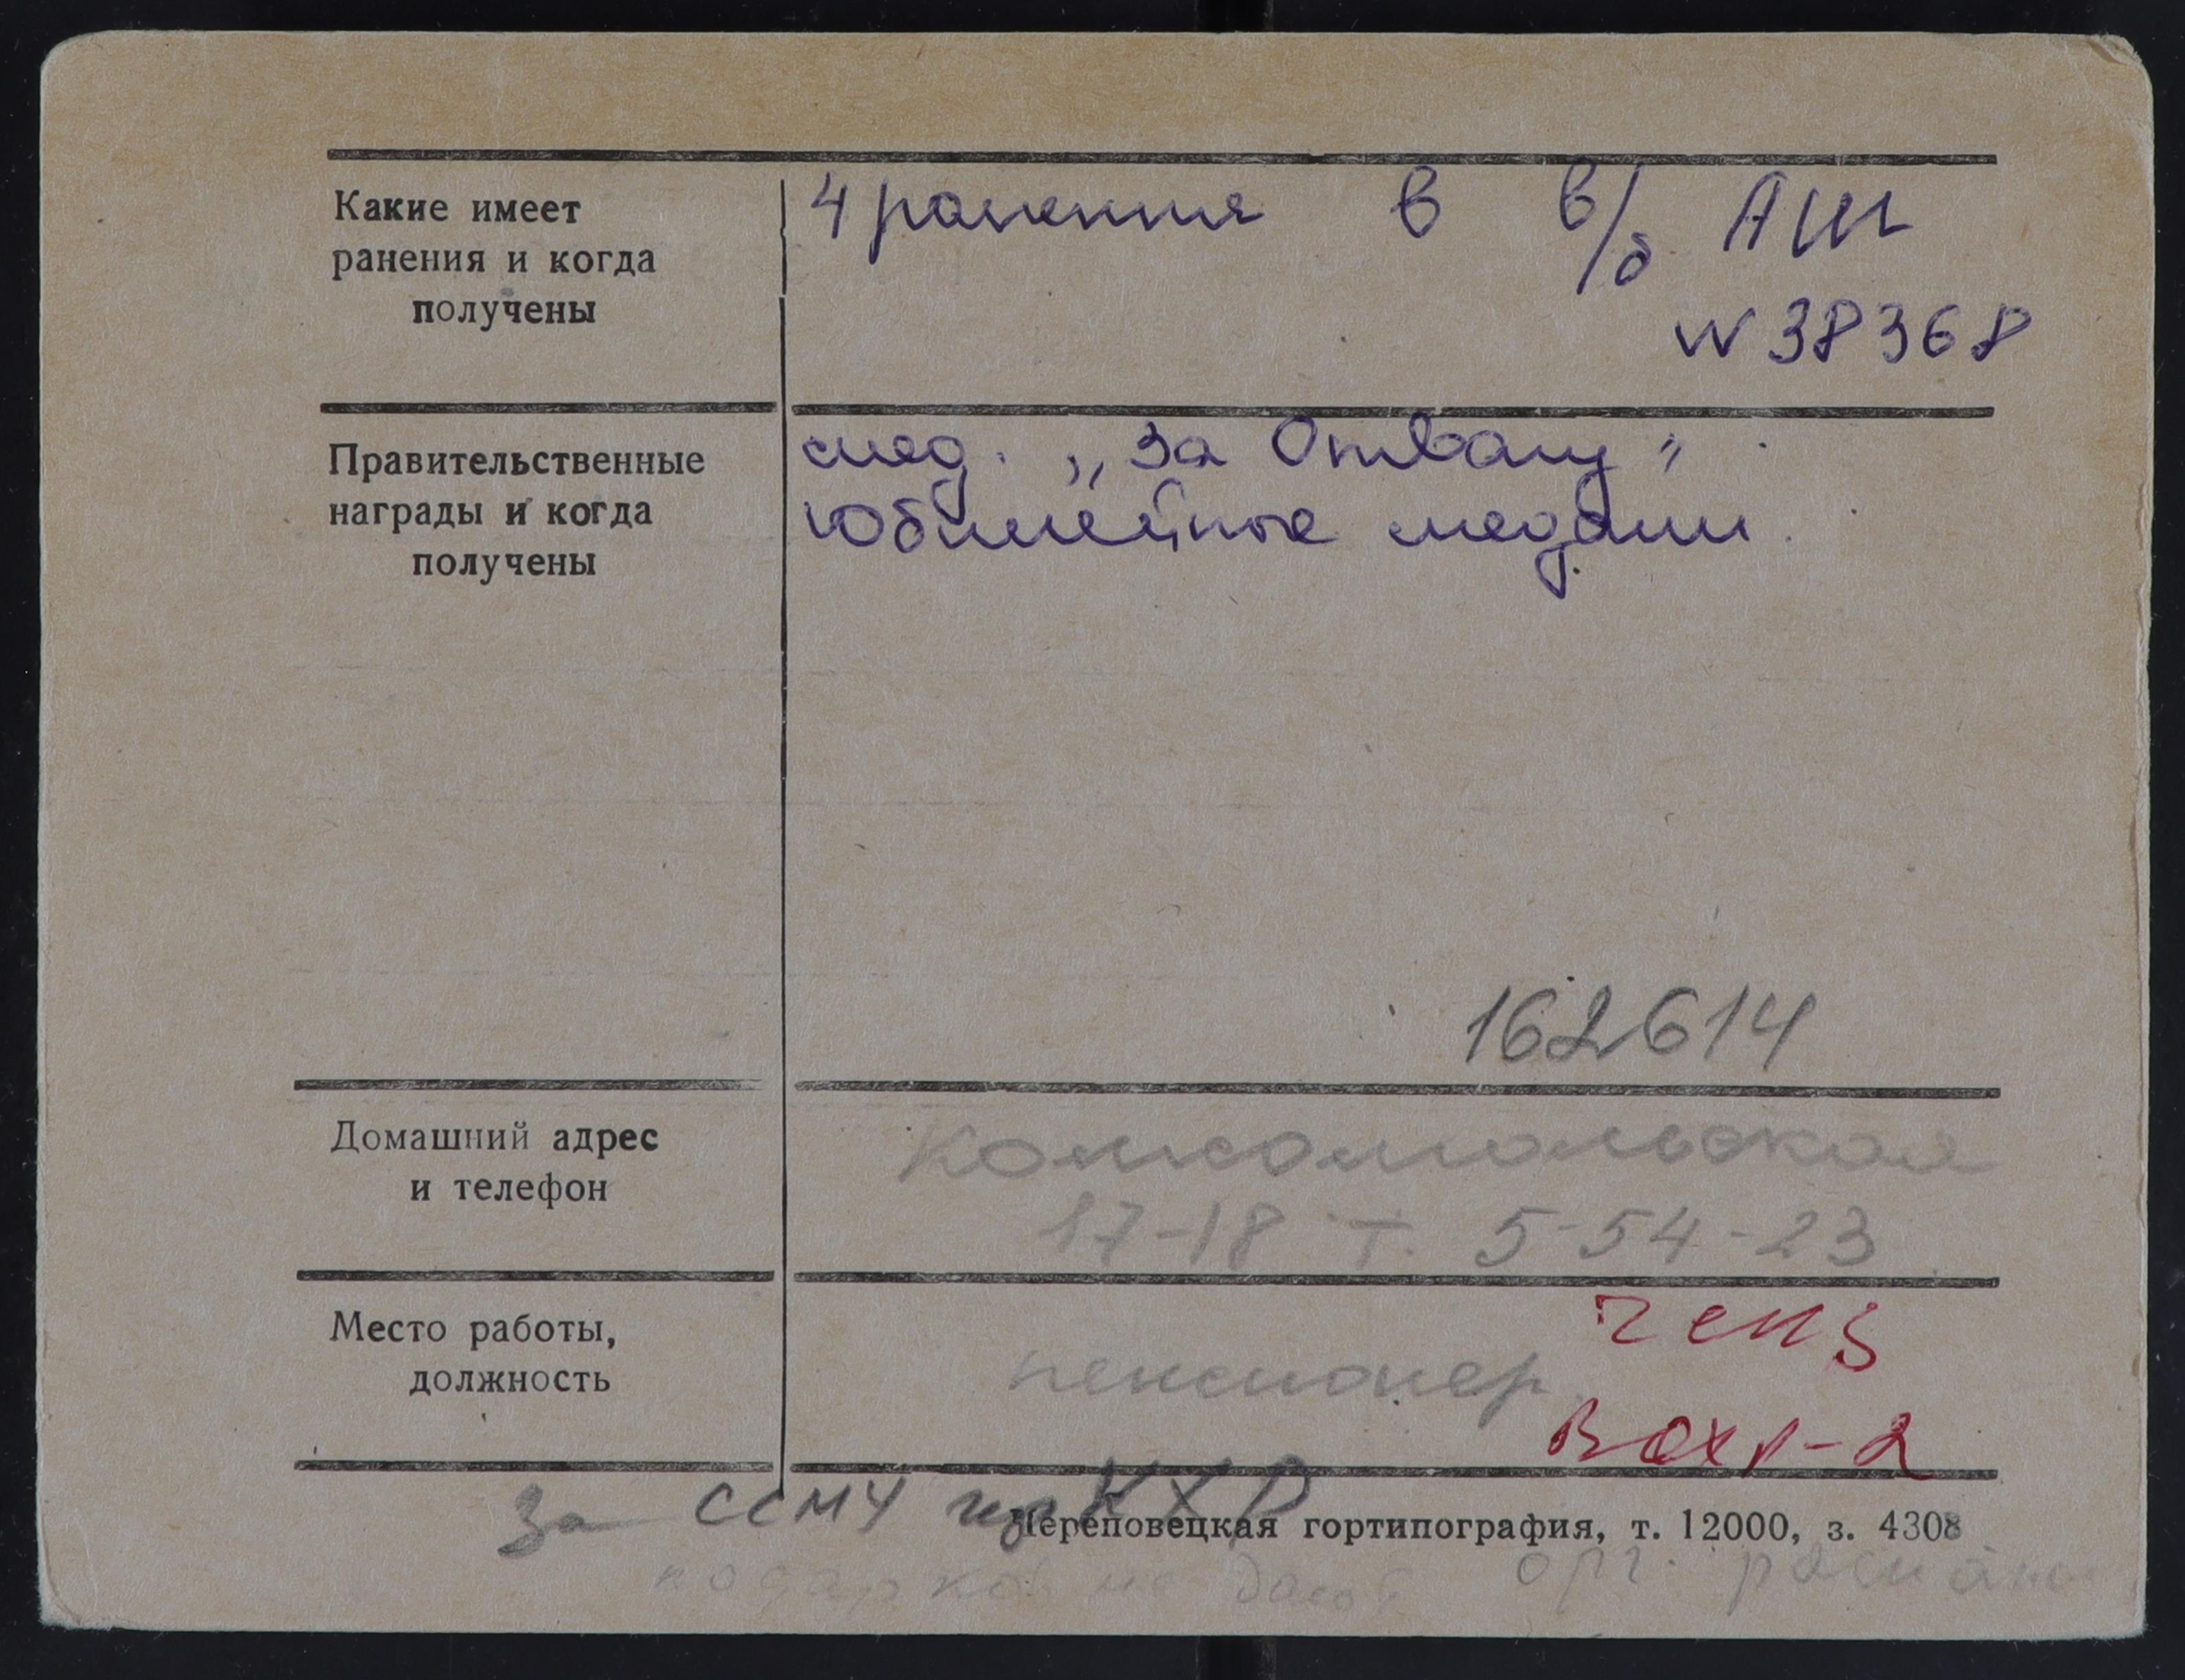 Какие имеет
ранения и когда
получены
4 ранения в в/б АШ
N 38368
Правительственные
награды и когда
получены
мед. „За Отвагу"
Юбилейные медали.
162614
Домашний адрес
и телефон
Комсомольская
17-18 т. 5-54-23
Место работы,
должность
пенсионер
ВОХР-2
За ССМУ КХР
Череповецкая гортипография, т. 12000, з. 4308
подарков не дают орг.